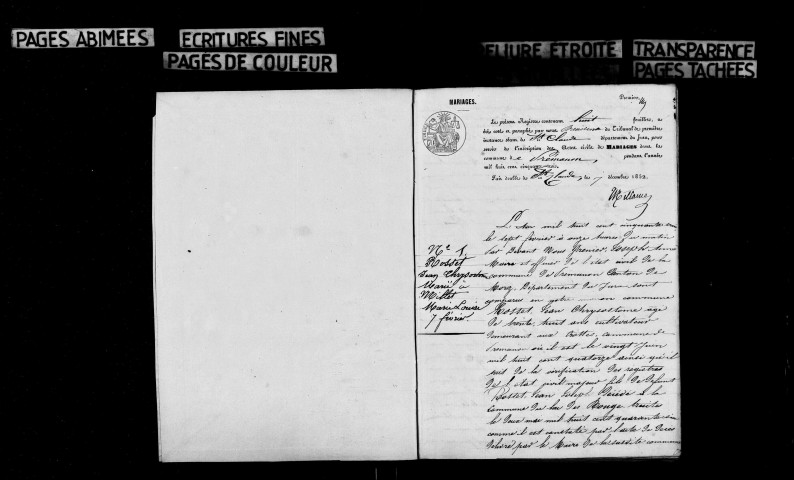 PAGES ABIMEES
ECRITURES FINES
PAGES DE COULEUR
RELIURE ETROITE
TRANSPARENCE
PAGES TACHEES
MARIAGES.
Le présent Registre contenant huit feuillets, a
été coté et paraphé par nous Président du Tribunal de première
instance séant de St Claude département du Jura, pour
servir à l'inscription des Actes civils de MARIAGES dans la
commune de Prémanon, pendant l'année
mil huit cent cinquante
Fait double à St Claude, le 7 décembre 1852.
L'an mil huit cent cinquante
le sept février à onze heures du matin
par devant Nous Joseph
Maire et officier de l'état civil de la
commune de Prémanon Canton de
Morez, Département du Jura sont
comparus en commune
Rosset, Jean Chrysostome âgé
de trente huit ans cultivateur
demeurant aux commune de
Prémanon où il est le vingt Juin
mil huit cent quatorze ainsi qu'il
suit de la vérification des registres
de l'état civil majeur fils de défunt
Rosset, Jean Joseph décédé à la
Commune du
le deux mai mil huit cent quarante six
comme il est constaté par l'acte de décès
délivré par le Maire de la susdite commune
N° 1
Rosset
Jean Chrysostome
Marié à
Millet
Marie Louise
7 février.